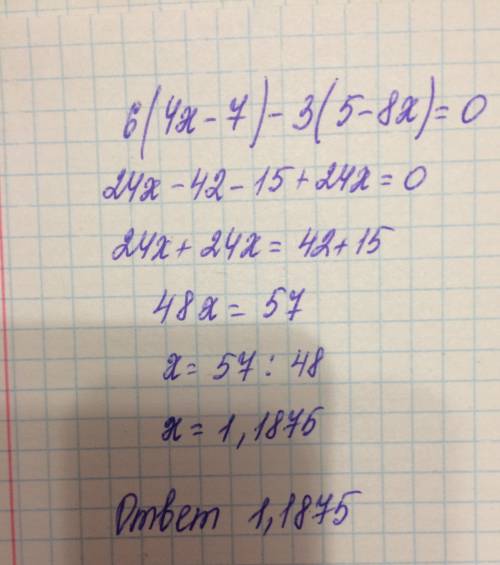 6(4x-7)-3(5-8x)=0
24x-42-15+24x=0
24x+24x=42+15
48x=57
x=57:48
x=1,1875
Ответ 1,1875